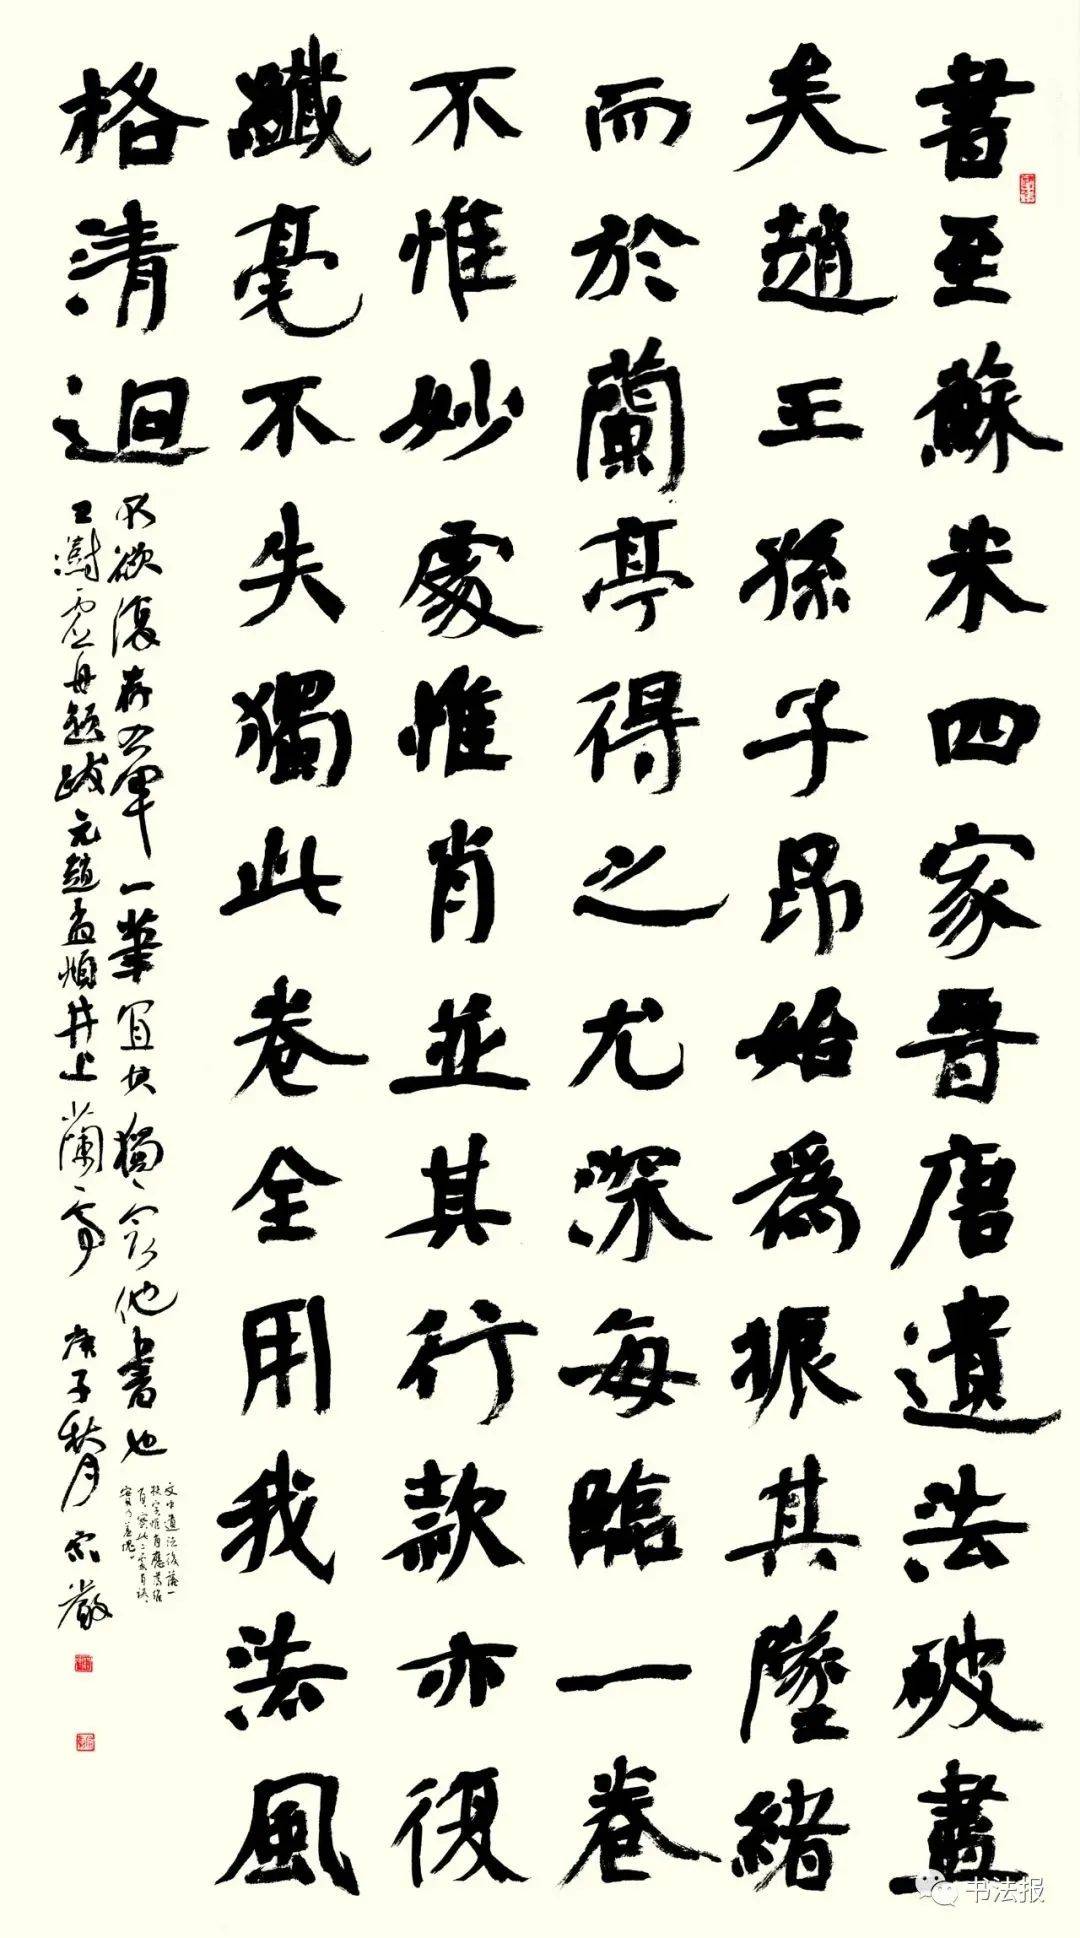 書至蘇米四家晉唐遺法破盡
矣趙王孫子昂始爲振其墜緒
而於蘭亭得之尤深每臨一卷
不惟妙處惟肖並其行款亦復
纖毫不失獨此卷全用我法風
格清迥
不欲復存右軍一筆宜其獨冠他書也
王澍虛舟題跋元趙孟頫井上蘭亭 庚子秋月
文中遺法後落一
书法报